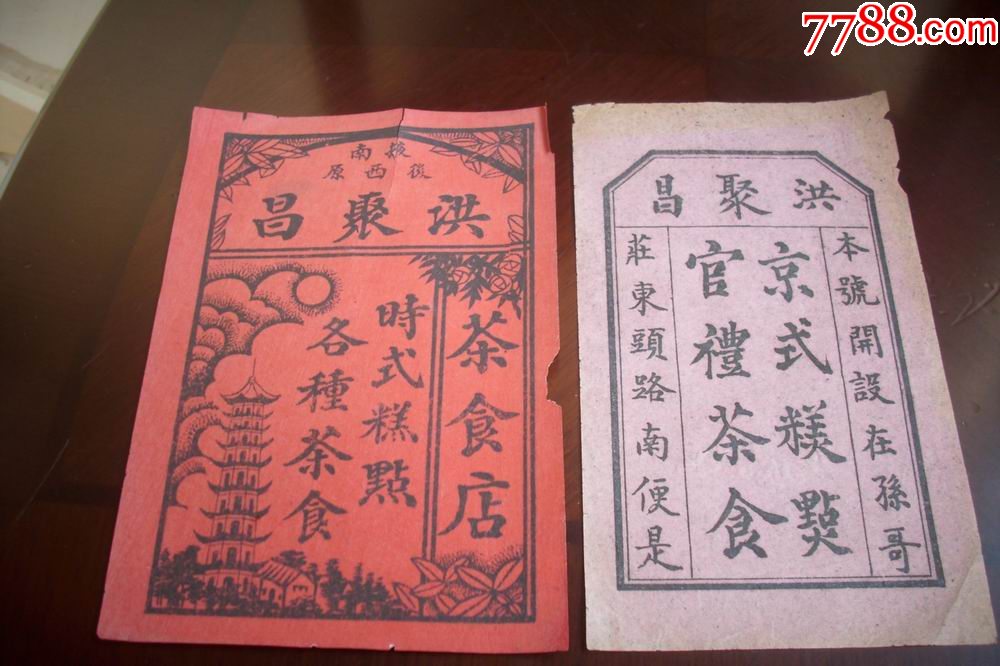 7788.com
掖南
後西原
洪聚昌
茶食店
時式糕點
各種茶食
洪聚昌
本號開設在孫哥
京式糕點
官禮茶食
莊東頭路南便是